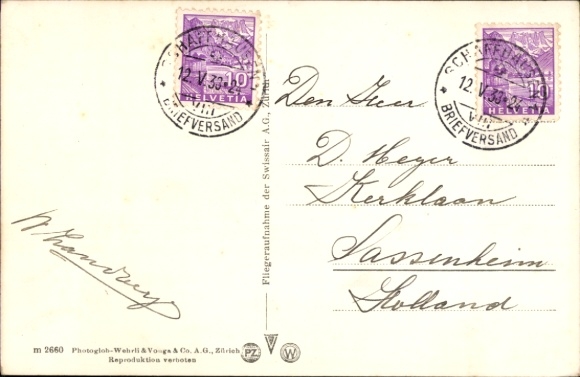 SCHAFFHAUSEN
12.V.36-24
VIII
BRIEFVERSAND
10
HELVETIA
SCHAFFHAUSEN
12.V.36-24
VIII
BRIEFVERSAND
10
HELVETIA
Den Heer
D. Heyer
Kerklaan
Sassenheim
Holland
Fliegeraufnahme der Swissair A.G., Zürich
m 2660 Photoglob-Wehrli & Vouga & Co. A.G., Zürich
Reproduktion verboten
PZ
W